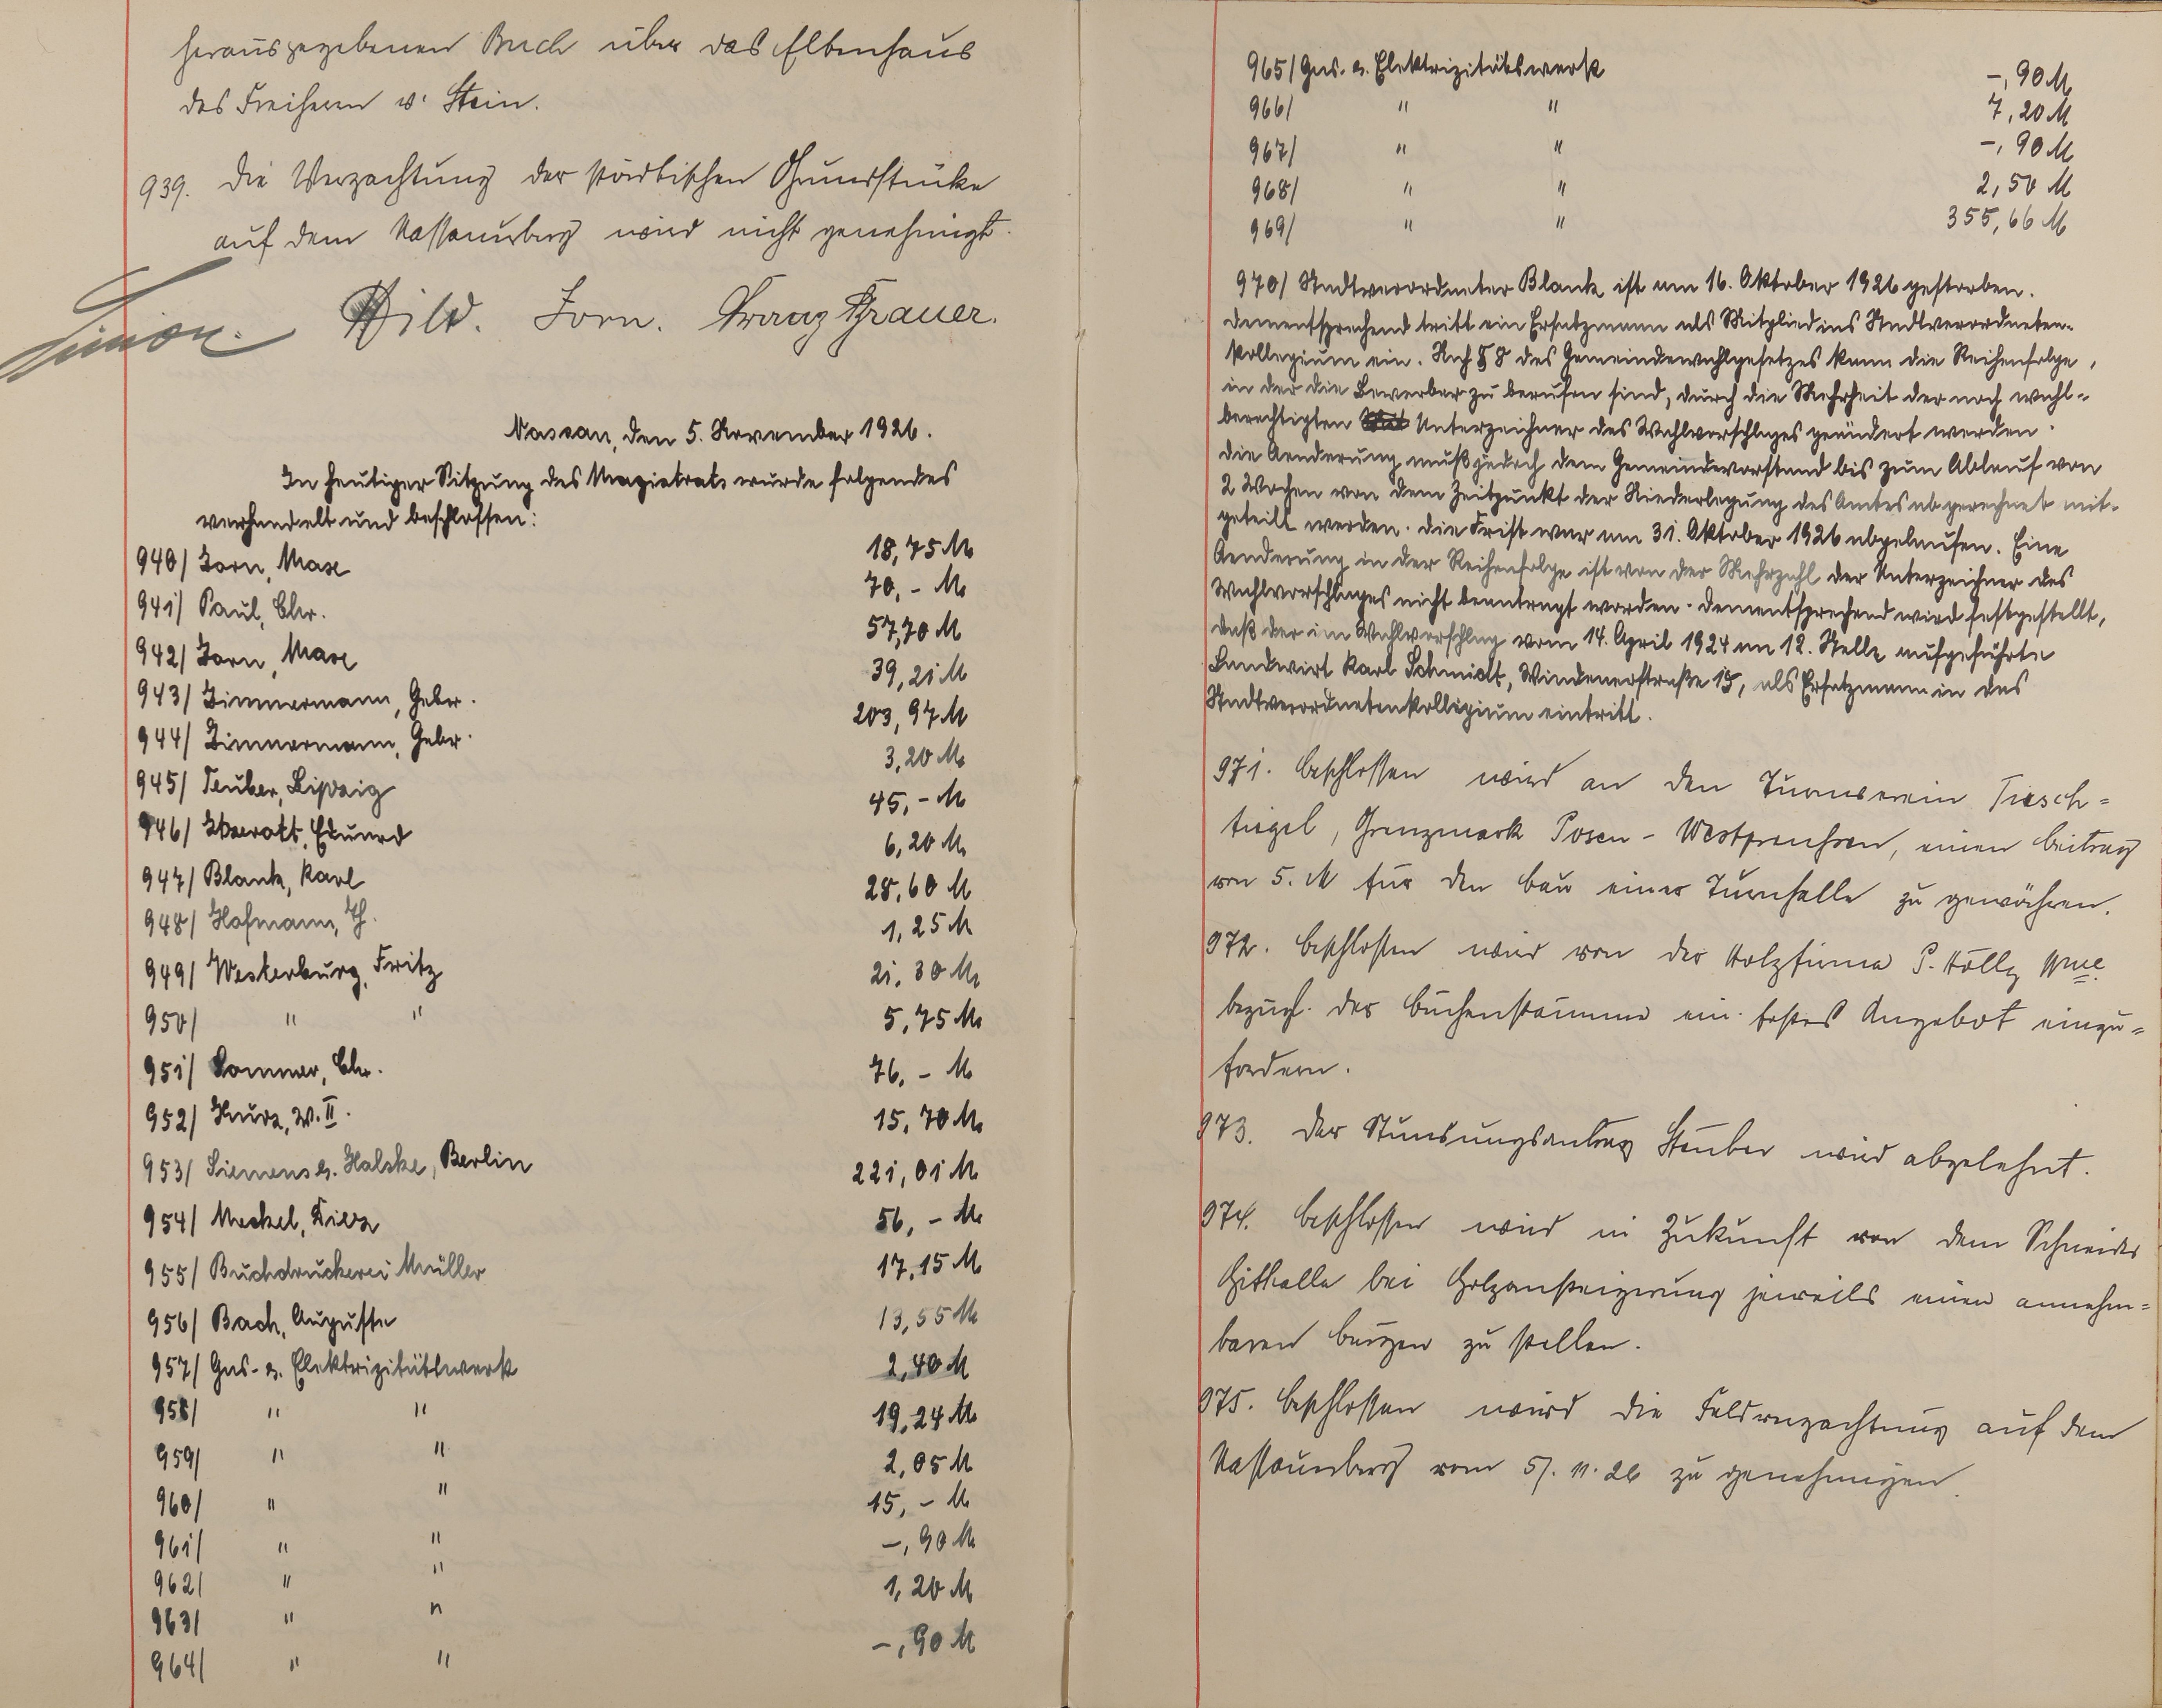 herausgegebenen Buch über das Elternhaus
des Freiherrn v. Stein.
939. Die Verpachtung der städtischen Grundstücke
auf dem Nassauerberg wird nicht genehmigt.
Hild. Zorn. Franz Grauer.
Nassau, den 5. November 1926.
In heutiger Sitzung des Magistrats wurde folgendes
verhandelt und beschlossen:
940/ Zorn, Max 18,75 M
941/ Paul, Chr. 70,- M
942/ Zorn, Max 57,70 M
943/ Zimmermann, Gebr. 39,21 M
944/ Zimmermann, Gebr. 203,97 M
945/ Teuber, Leipzig 3,20 M
946/ Eduard 45,- M
947/ Blank, Karl 6,20 M
948/ Hofmann, Th. 28,60 M
949/ Westerburg, Fritz 1,25 M
950/ " " 21,30 M
951/ Sommer, Chr. 5,75 M
952/ Kurz, W. II. 76,- M
953/ Siemens u. Halske, Berlin 15,70 M
954/ Meckel, Diez 221,01 M
955/ Buchdruckerei Müller 56,- M
956/ Bach, Auguste 17,15 M
957/ Gas- u. Elektrizitätswerk 13,55 M
958/ " " 2,40 M
959/ " " 19,24 M
960/ " " 2,05 M
961/ " " 15,- M
962/ " " -,90 M
963/ " " 1,20 M
964/ " " -,90 M
965/ Gas- u. Elektrizitätswerk -,90 M
966/ " " 7,20 M
967/ " " -,90 M
968/ " " 2,50 M
969/ " " 355,66 M
970/ Stadtverordneter Blank ist am 16. Oktober 1926 gestorben.
Dementsprechend tritt ein Ersatzmann als Mitglied ins Stadtverordneten-
kollegium ein. Nach § 8 des Gemeindewahlgesetzes kann die Reihenfolge,
in der die Bewerber zu berufen sind, durch die Mehrheit der noch wahl-
berechtigten Unterzeichner des Wahlvorschlages geändert werden.
Die Aenderung muß jedoch dem Gemeindevorstand bis zum Ablauf von
2 Wochen von dem Zeitpunkt der Niederlegung des Amtes ab gerechnet mit-
geteilt werden. Die Frist war am 31. Oktober 1926 abgelaufen. Eine
Aenderung in der Reihenfolge ist von der Mehrzahl der Unterzeichner des
Wahlvorschlages nicht beantragt worden. Dementsprechend wird festgestellt,
daß der im Wahlvorschlag vom 14. April 1924 an 12. Stelle aufgeführte
Landwirt Karl Schmidt, Windenerstraße 15, als Ersatzmann in das
Stadtverordnetenkollegium eintritt.
971. Beschlossen wird an den Turnverein Tirsch=
tiegel, Grenzmark Posen-Westpreußen, einen Beitrag
von 5. M für den Bau einer Turnhalle zu gewähren.
972. Beschlossen wird von der Holzfirma P. Hölly Wwe.
bezügl. der Buchenstämme ein festes Angebot einzu=
fordern.
973. Der Stundungsantrag Steuber wird abgelehnt.
974. Beschlossen wird in Zukunft von dem Schneider
bei Holzansteigerung jeweils einen annehm=
baren Bürgen zu stellen.
975. Beschlossen wird die Feldverpachtung auf dem
Nassauerberg vom 5/. 11. 26 zu genehmigen.